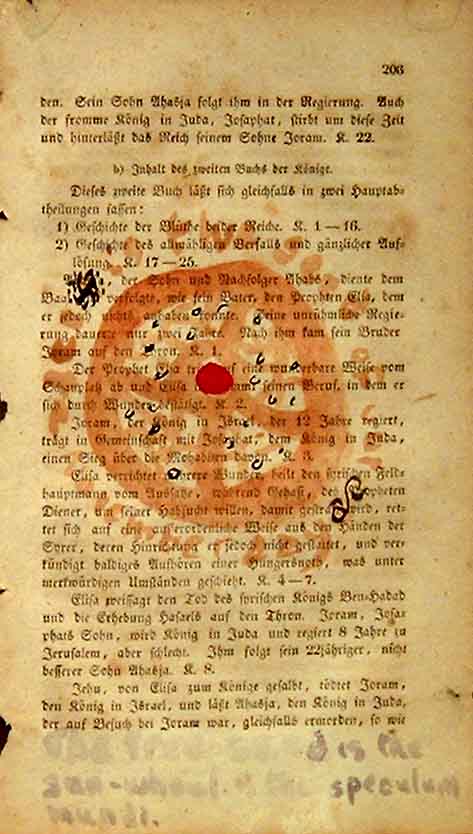 203
den. Sein Sohn Ahasja folgt ihm in der Regierung. Auch
der fromme König in Juda, Josaphat, stirbt um diese Zeit
und hinterläßt das Reich seinem Sohne Joram. K. 22.
b) Inhalt des zweiten Buchs der Könige.
Dieses zweite Buch läßt sich gleichfalls in zwei Hauptab-
theilungen fassen:
1) Geschichte der Blüthe beider Reiche. K. 1—16.
2) Geschichte des allmähligen Verfalls und gänzlicher Auf-
lösung. K. 17—25.
der Sohn und Nachfolger Ahabs, diente dem
Baal verfolgte, wie sein Vater, den Propheten Elia, dem
er jedoch nichts anhaben konnte. Seine unrühmliche Regie-
rung dauerte nur zwei Jahre. Nach ihm kam sein Bruder
Joram auf den Thron. K. 1.
Der Prophet Elia auf eine wunderbare Weise vom
Schauplatz ab und Elisa seinen Beruf, in dem er
sich durch Wunder bestätigt. K. 2.
Joram, der König in Israel, der 12 Jahre regiert,
trägt in Gemeinschaft mit Josaphat, dem König in Juda,
einen Sieg über die Moabiten davon. K. 3.
Elisa verrichtet mehrere Wunder, heilt den syrischen Feld-
hauptmann vom Aussatze, während Gehasi, des Propheten
Diener, um seiner Habsucht willen, damit gestraft wird, ret-
tet sich auf eine außerordentliche Weise aus den Händen der
Syrer, deren Hinrichtung er jedoch nicht gestattet, und ver-
kündigt baldiges Aufhören einer Hungersnoth, was unter
merkwürdigen Umständen geschieht. K. 4—7.
Elisa weissagt den Tod des syrischen Königs Ben-Hadad
und die Erhebung Hasaels auf den Thron. Joram, Josa-
phats Sohn, wird König in Juda und regiert 8 Jahre zu
Jerusalem, aber schlecht. Ihm folgt sein 22jähriger, nicht
besserer Sohn Ahasja. K. 8.
Jehu, von Elisa zum Könige gesalbt, tödtet Joram,
den König in Israel, und läßt Ahasja, den König in Juda,
der auf Besuch bei Joram war, gleichfalls ermorden, so wie
is the
sun-wheel the speculum
mundi.